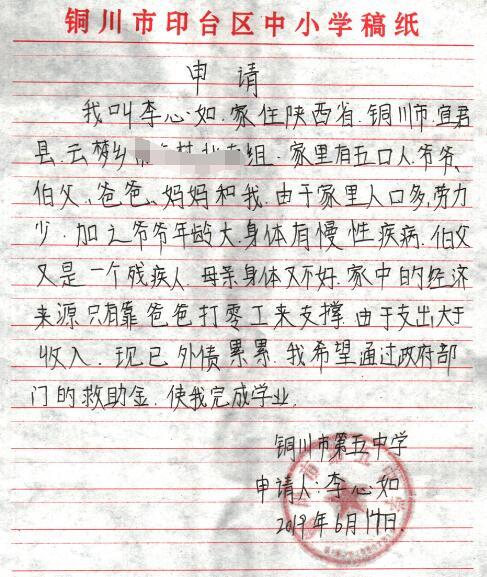 铜川市印台区中小学稿纸
申请
我叫李心如.家住陕西省.铜川市.宜君
县.云梦乡组.家里有五口人.爷爷、
伯父、爸爸、妈妈和我.由于家里人口多,劳力
少.加之爷爷年龄大.身体有慢性疾病.伯父
又是一个残疾人.母亲身体又不好.家中的经济
来源只有靠爸爸打零工来支撑.由于支出大于
收入.现已外债累累.我希望通过政府部
门的救助金.使我完成学业.
铜川市第五中学
申请人:李心如
2019年6月17日.